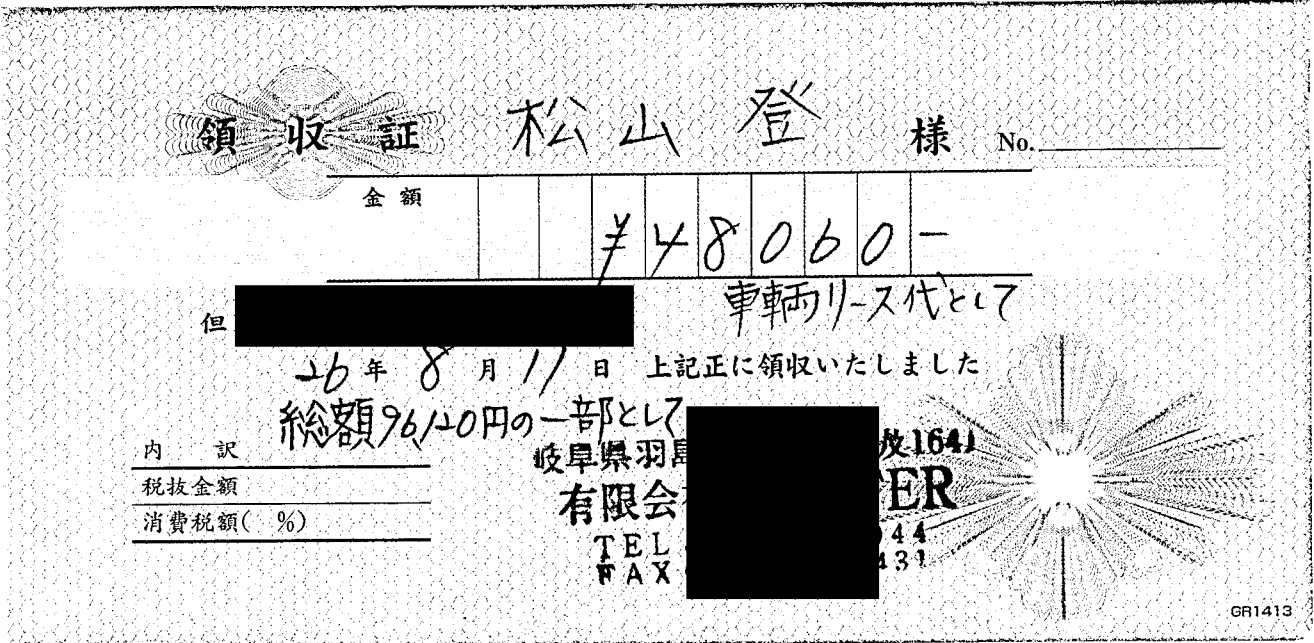 領収証 松山 登 様 No.
金額 ¥48060-
但 車輌リース代として
26年8月11日 上記正に領収いたしました
総額96,120円の一部として
内訳
税抜金額
消費税額( %)
岐阜県羽島 1641
有限会 ER
TEL 44
FAX 431
GR1413